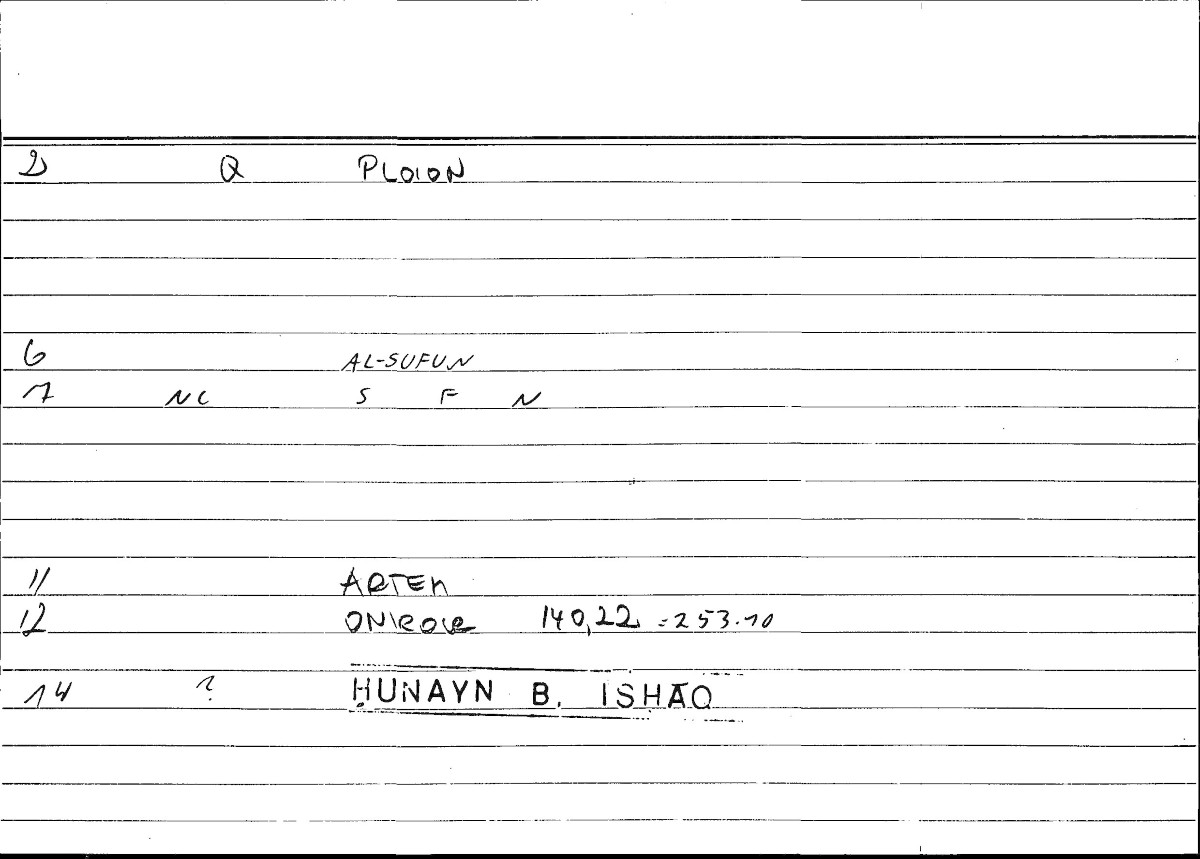 2 Q PLOION
6 AL-SUFUN
7 NC S F N
11 ARTEM
12 ONIROCR 140,22 =253.10
14 ? ḤUNAYN B. ISḤĀQ